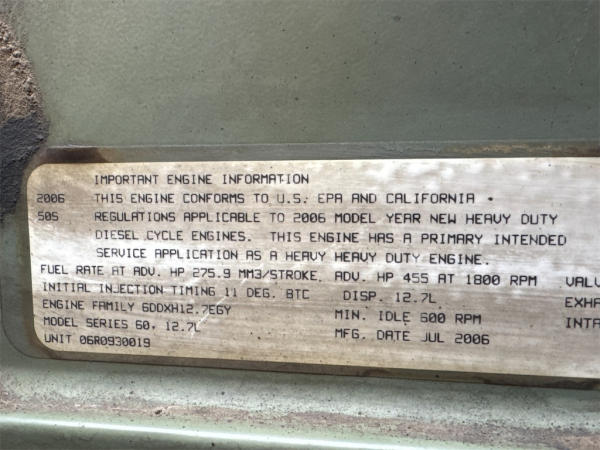 IMPORTANT ENGINE INFORMATION
2006 THIS ENGINE CONFORMS TO U.S. EPA AND CALIFORNIA
50S REGULATIONS APPLICABLE TO 2006 MODEL YEAR NEW HEAVY DUTY
DIESEL CYCLE ENGINES. THIS ENGINE HAS A PRIMARY INTENDED
SERVICE APPLICATION AS A HEAVY HEAVY DUTY ENGINE.
FUEL RATE AT ADV. HP 275.9 MM3/STROKE. ADV. HP 455 AT 1800 RPM VALV
INITIAL INJECTION TIMING 11 DEG. BTC DISP. 12.7L EXHA
ENGINE FAMILY 6DDXH12.7EGY MIN. IDLE 600 RPM INTA
MODEL SERIES 60, 12.7L MFG. DATE JUL 2006
UNIT 06R0930019